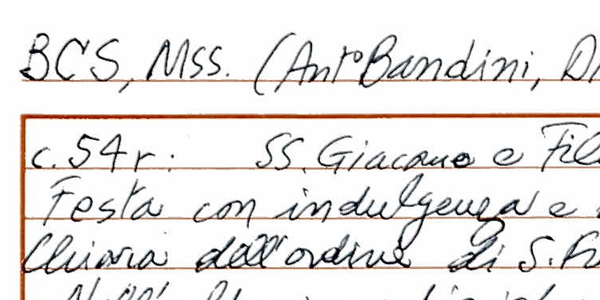 BCS, Mss. (Ant° Bandini, D
c. 54r: SS. Giacomo e Fil
Festa con indulgenza e
Chiara dall'ordine di S. Fr